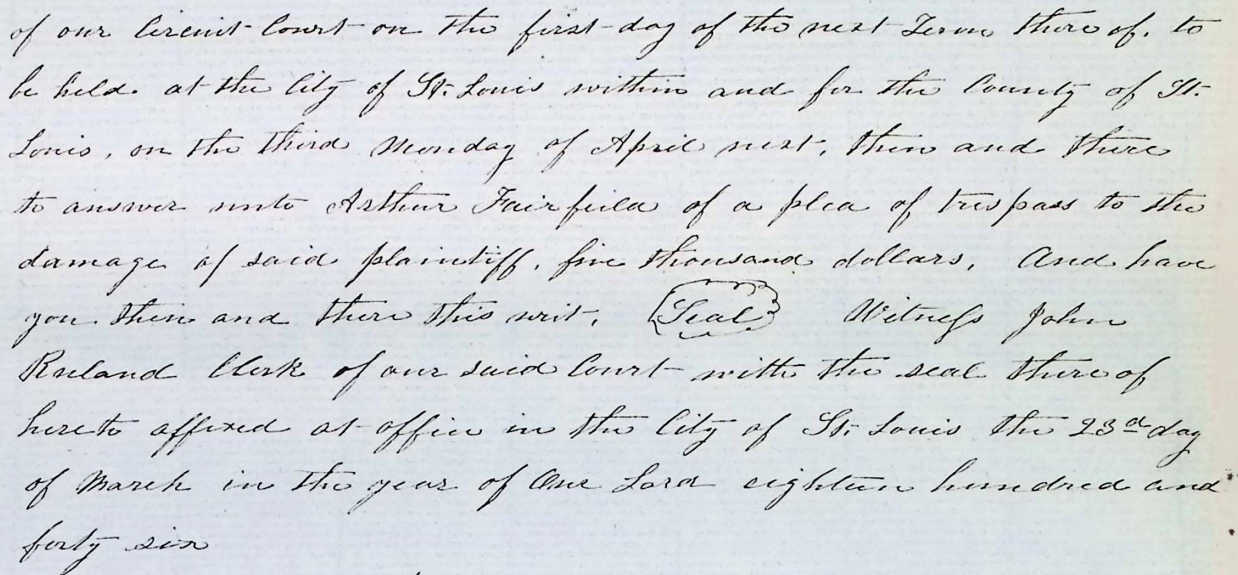 of our Circuit Court on the first day of the next Term thereof, to
be held at the City of St. Louis within and for the County of St.
Louis, on the third Monday of April next, then and there
to answer unto Arthur Fairfield of a plea of trespass to the
damage of said plaintiff, five thousand dollars, And have
you then and there this writ. Seal Witness John
Ruland Clerk of our said Court with the seal thereof
hereto affixed at office in the City of St. Louis the 23rd day
of March in the year of Our Lord eighteen hundred and
forty six